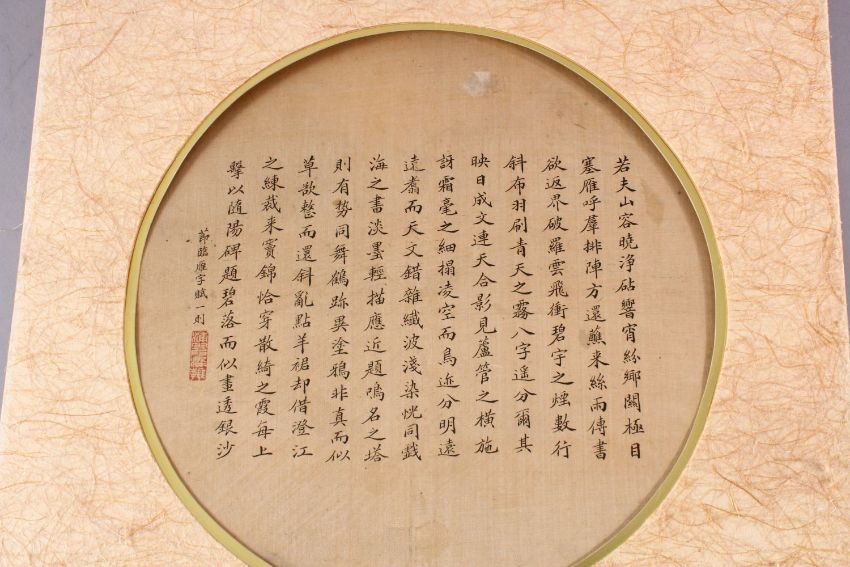 若夫山容曉淨砧響宵紛鄉關極目
塞雁呼群排陣方還蘸来絲雨傳書
欲返界破羅雲飛衝碧宇之煙數行
斜布羽刷青天之霧八字遥分爾其
映日成文連天合影見蘆管之橫施
訝霜毫之細搨凌空而鳥迹分明遠
遠翥而天文錯雜纖波淺染恍同戲
海之書淡墨輕描應近題鳴名之塔
則有势同舞鶴跡異塗鴉非真而似
草欲整而還斜亂點羊裙却借澄江
之練裁来竇錦恰穿散綺之霞每上
擊以随陽碑題碧落而似畫透銀沙
節臨雁字賦一則